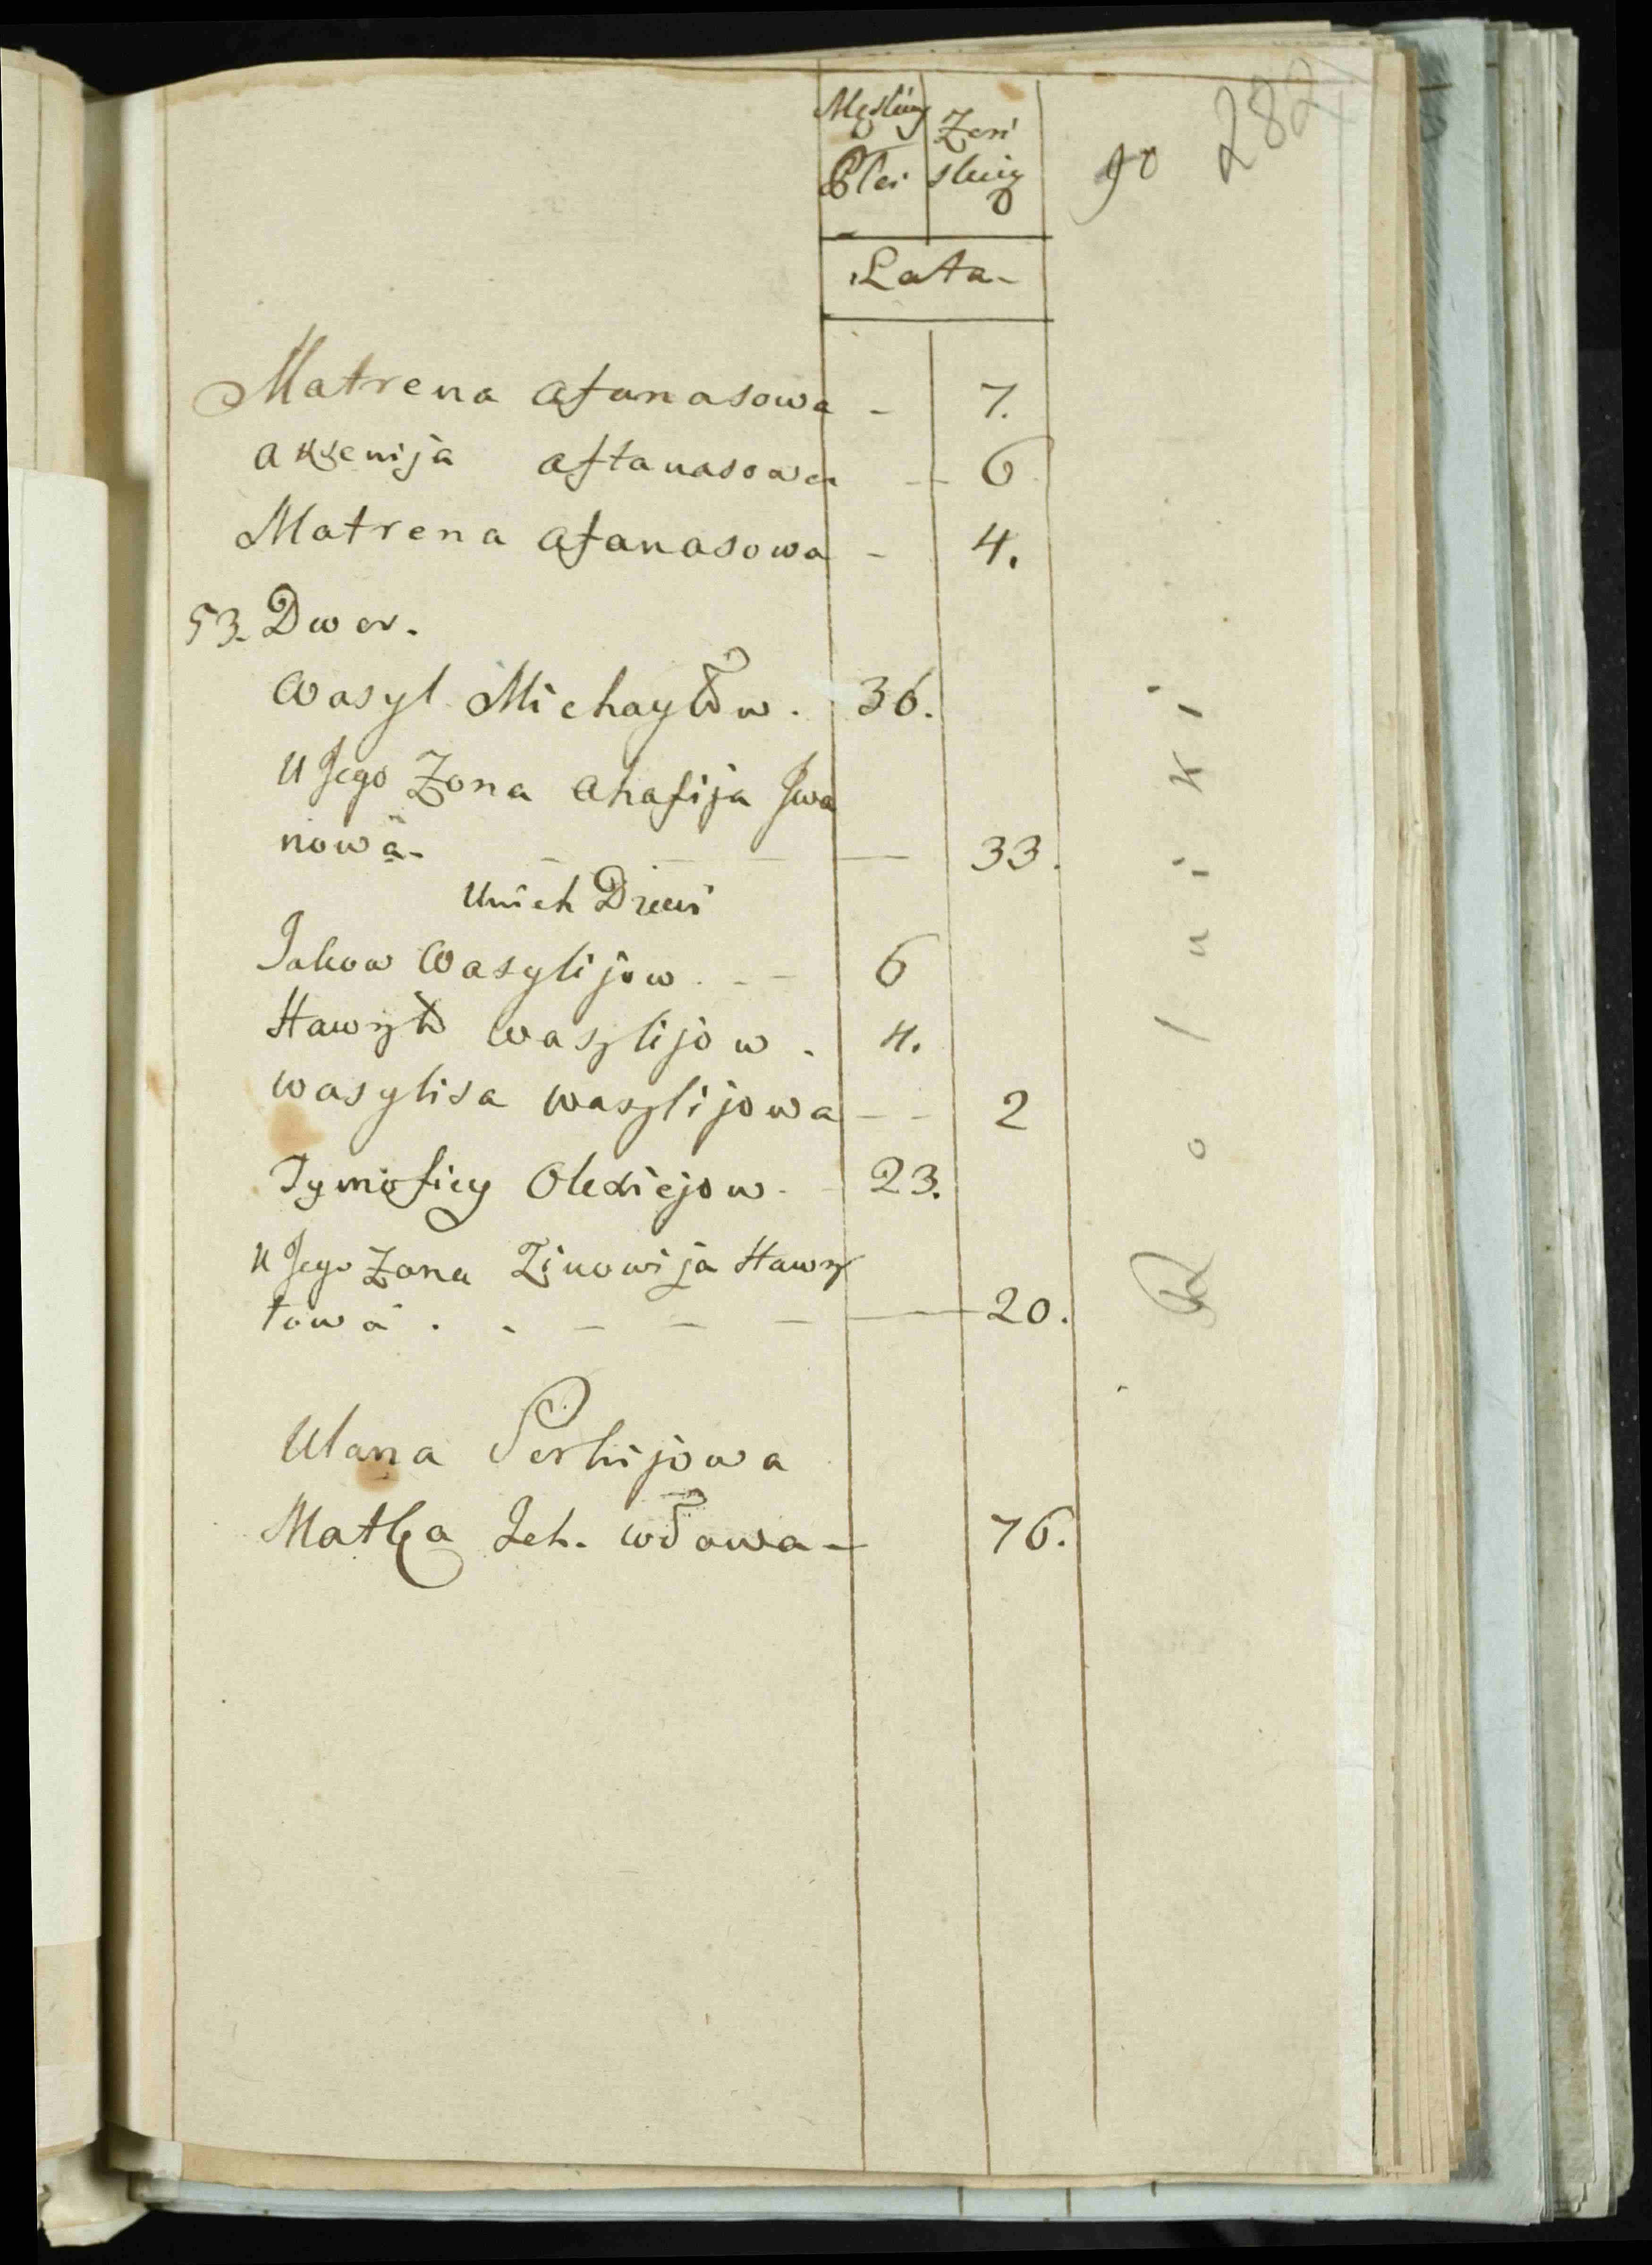 Męskiey Żeń
Płci skiey
90 282
Lata
Matrena Afanasowa - 7.
Aksenija Aftanasowa - 6
Matrena Afanasowa - 4.
53. Dwor.
Wasyl Michayłow. 36.
U Jego Żona Ahafija Jwa
nowa - 33.
U nich Dzieci
Jakow Wasylijow - 6
Hawryło Wasylijow. 4.
Wasylisa Wasylijowa - - 2
Tymofiey Olexiejow - 23.
U Jego Żona Zinowija Hawry
łowa . . - - - 20.
Ulana Serhijowa
Matka Ich. wdowa - 76.
Rolniki